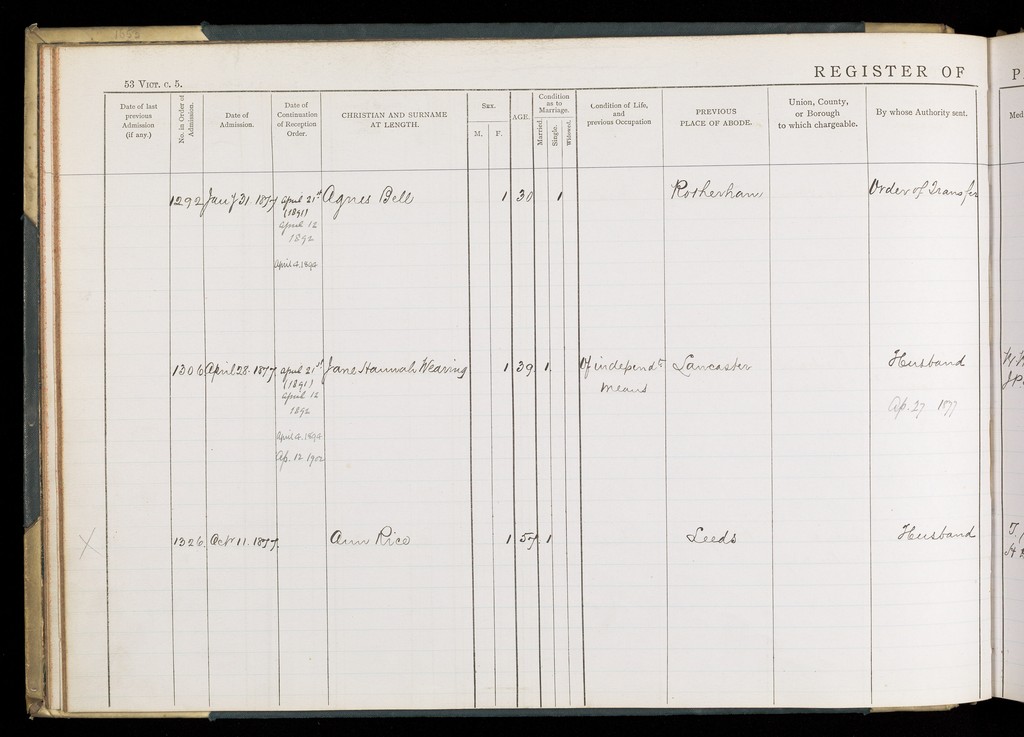 1653
REGISTER OF P
53 VICT. c. 5.
Date of last previous Admission (if any.)
No. in Order of Admission.
Date of Admission.
Date of Continuation of Reception Order.
CHRISTIAN AND SURNAME AT LENGTH.
SEX.
M. F.
AGE.
Condition as to Marriage.
Married. Single. Widowed.
Condition of Life, and previous Occupation
PREVIOUS PLACE OF ABODE.
Union, County, or Borough to which chargeable.
By whose Authority sent.
Med
1292 Jany 31 1877 April 21st Agnes Bell 1 30 1 Rotherham Order of Transfer
(1891)
April 12
1892
April 4. 1894
1306 April 28. 1877 April 21st Jane Hannah Wearing 1 39 1 Of independt Lancaster Husband
(1891) means
April 12 Ap. 27 1877
1892
J.P.
April 4. 1894
Ap. 12 1902
X 1326. Octr 11. 1877. Ann Rice 1 57 1 Leeds Husband